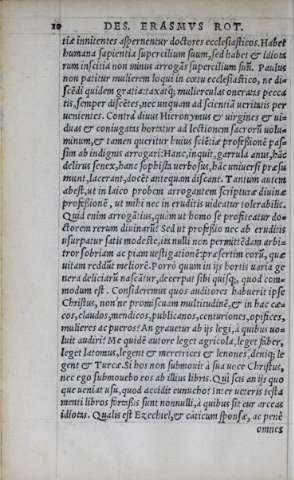 20 DES. ERASMVS ROT.
tiæ innitentes aspernentur doctores ecclesiasticos. Habet
humana sapientia supercilium suum, sed habet & idiota
rum inscitia non minus arrogãs supercilium suũ. Paulus
non patitur mulierem loqui in cœtu ecclesiastico, ne di=
scẽdi quidem gratia: taxatq; mulierculas oneratas pecca
tis, semper discẽtes, nec unquam ad scientiã ueritatis per
uenientes. Contrà diuus Hieronymus & uirgines & ui=
duas & coniugatas hortatur ad lectionem sacrorũ uolu=
minum, & tamen queritur huius sciẽtiæ professionẽ pas=
sim ab indignis arrogari: Hanc, inquit, garrula anus, hãc
delirus senex, hanc sophista uerbosus, hãc uniuersi præsu
munt, lacerant, docẽt antequam discant. Tantum autem
abest, ut in laico probem arrogantem scripturæ diuinæ
professionẽ, ut mihi nec in eruditis uideatur tolerabilis.
Quid enim arrogãtius, quàm ut homo se profiteatur do=
ctorem rerum diuinarũ? Sed ut professio nec ab eruditis
usurpatur satis modestè, ita nulli non permittẽdam arbi=
tror sobriam ac piam uestigationẽ: præsertim eorũ, quæ
uitam reddũt meliorẽ. Porrò quum in ijs hortis uaria ge
nera deliciarũ nascãtur, decerpat sibi quisq;, quod com=
modum est. Consideremus quos auditores habuerit ipse
Christus, non'ne promiscuam multitudinẽ, & in hac cæ=
cos, claudos, mendicos, publicanos, centuriones, opifices,
mulieres ac pueros? An grauetur ab ijs legi, à quibus uo=
luit audiri? Me quidẽ autore leget agricola, leget faber,
leget latomus, legent & meretrices & lenones, deniq; le
gent & Turcæ. Si hos non submouit à sua uoce Christus,
nec ego submouebo eos ab illius libris. Qui scis an ijs quo
que ueniat usu, quod accidit eunucho? Inter ueteris testa
menti libros fortassis sunt nonnulli, à quibus sit cur arceas
idiotas. Qualis est Ezechiel, & cãticum sponsæ, ac penè
omnes